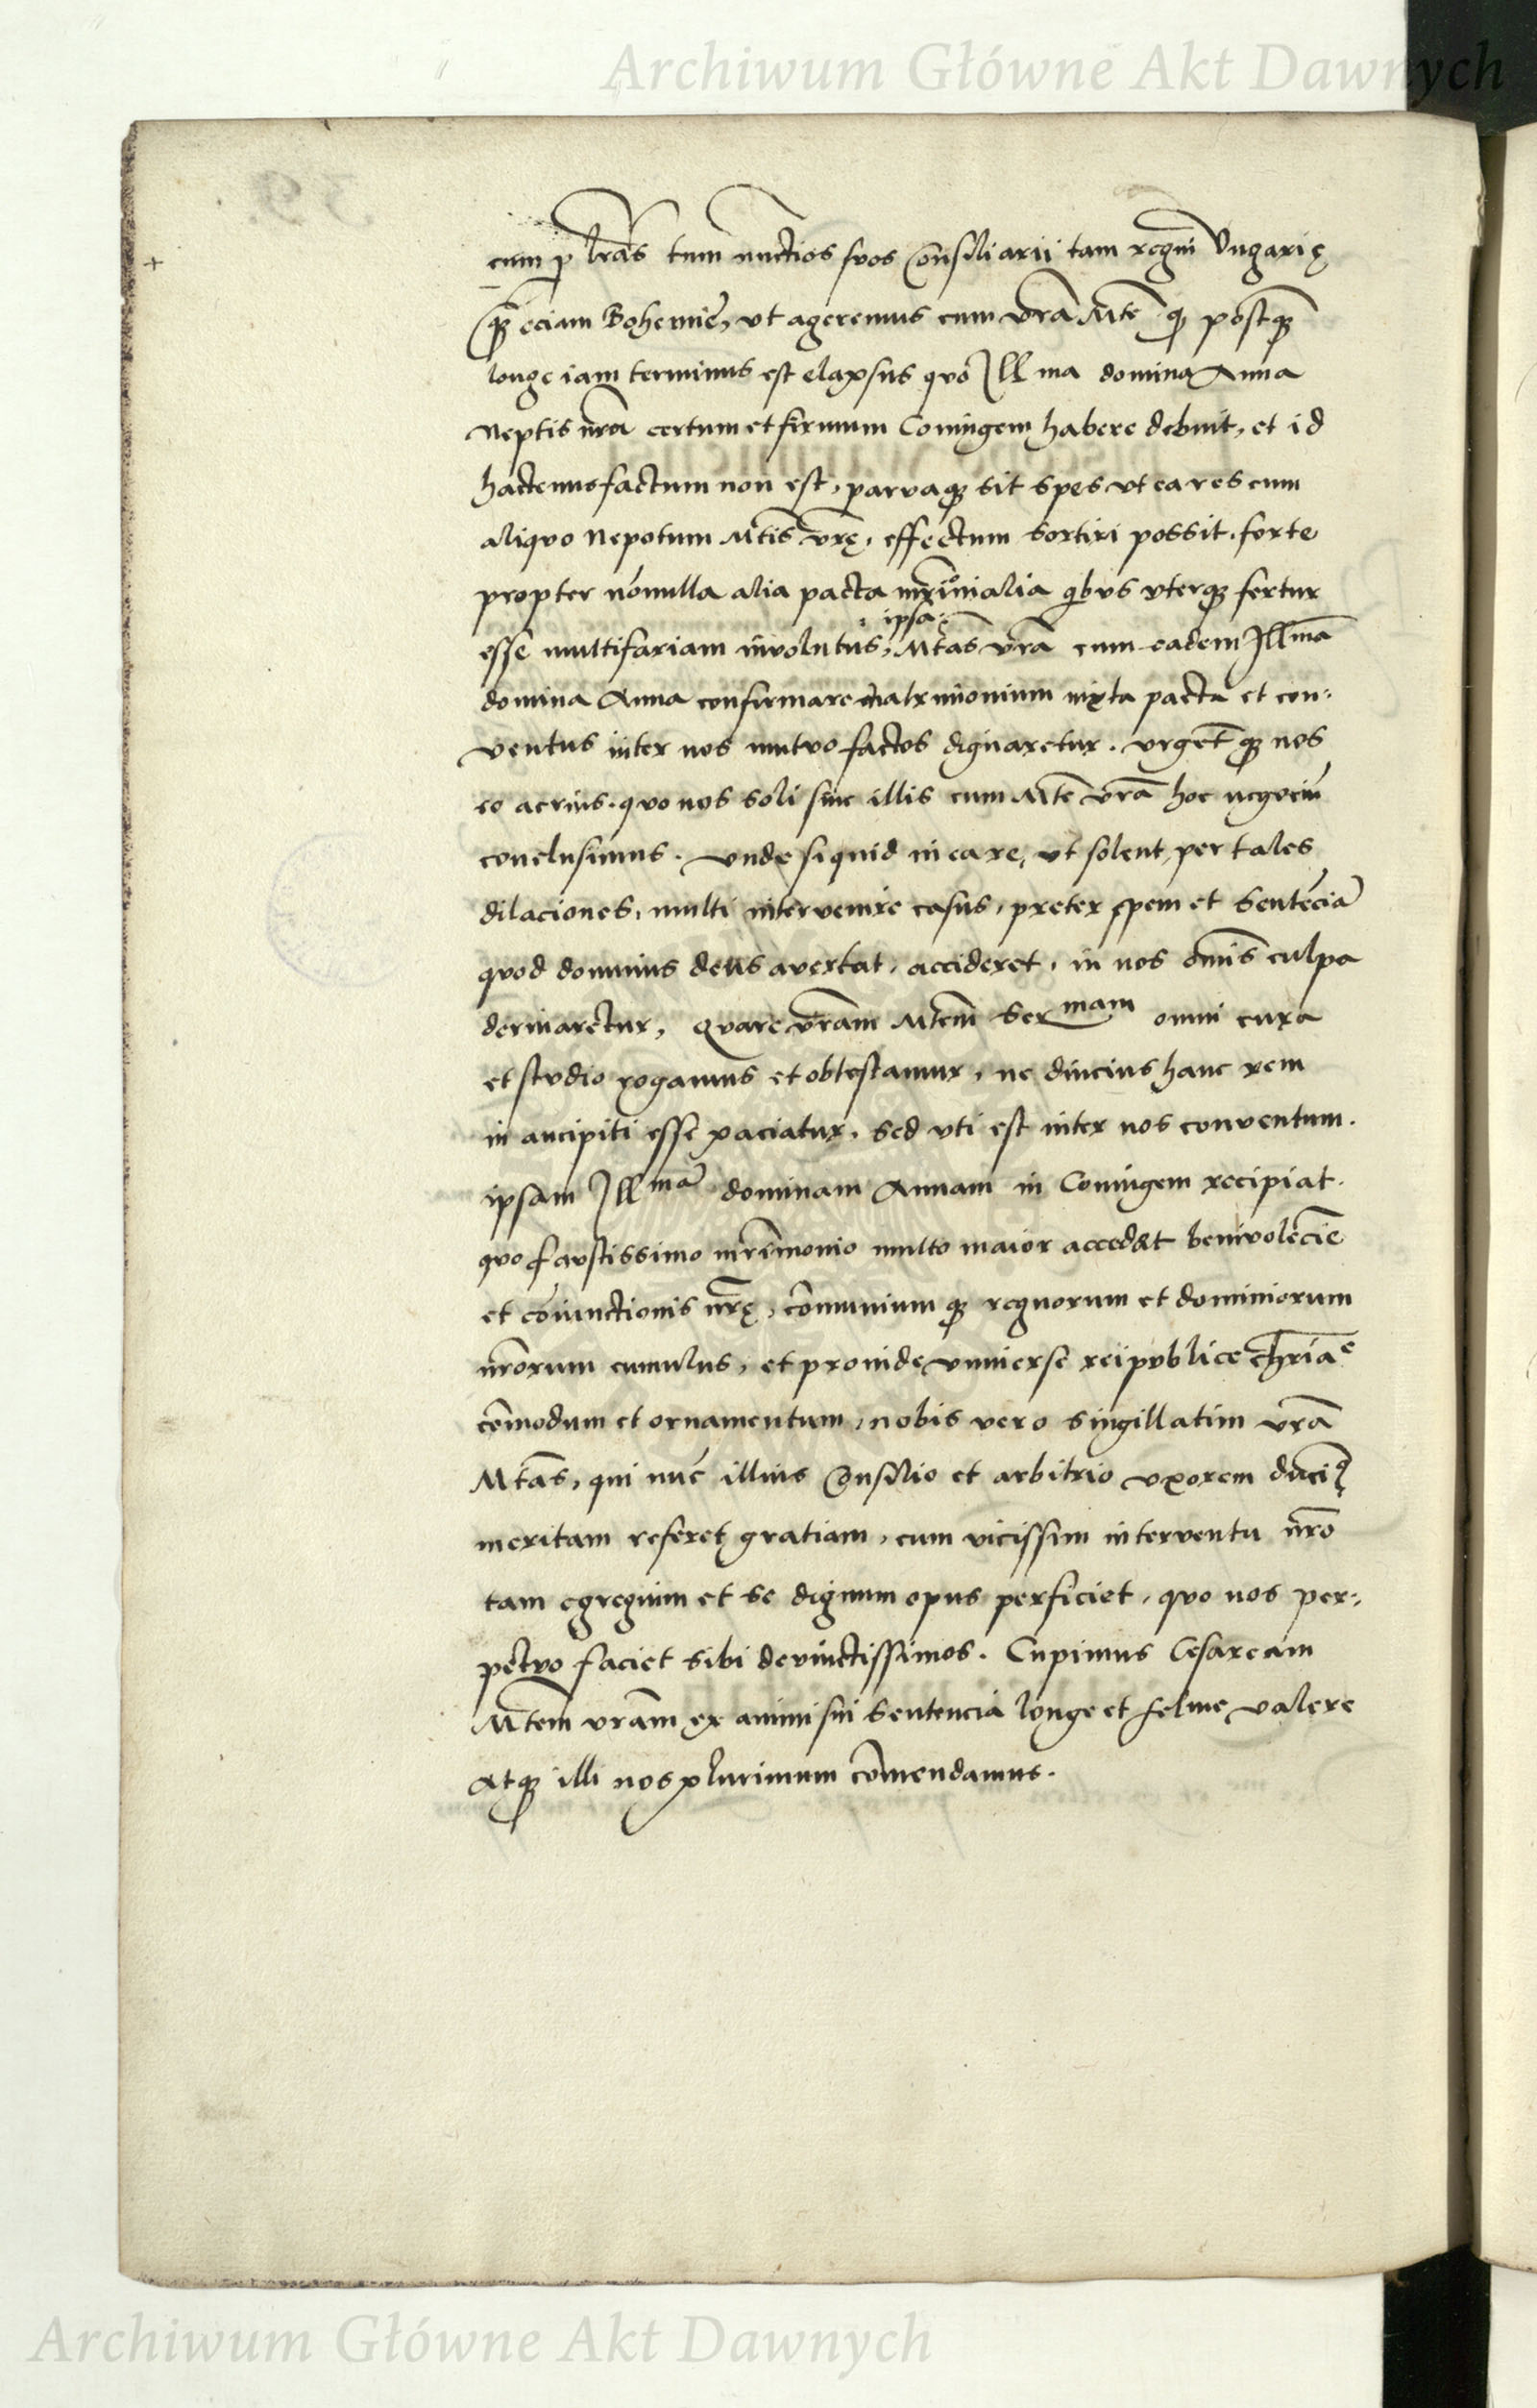 Archiwum Główne Akt Dawnych
39.
cum p lrãs tum nuctios suos Consiliarii tam regni Vngarię
q̃ȝ eciam Bohemie, vt ageremus cum vrã Mte qȝ postq̃ȝ
longe iam terminus est elapsus quo Ill ma domina Anna
Neptis nrã certum et firmum Coniugem habere debuit, et id
hactenus factum non est, paruaqȝ sit spes vt ea res cum
aliquo Nepotum Mtis vrę, effectum sortiri possit, forte
propter nõnulla alia pacta mr̃imõnialia qibus vterqȝ fertur
ipsa
esse multifariam inuolutus, Mtãs vrã cum eadem Illmã
domina Anna confirmare matrimonium iuxta pacta et con-
ventus inter nos mutuo factos dignaretur. vrgẽt qȝ nos
eo acrius. quo nos soli sine illis cum Mte vrã hoc negociũ
conclusimus. vnde siquid in ea re, vt solent, per tales
dilaciones, multi interuenire casus, preter spem et sentẽciã
quod dominus deus avertat, accideret, in nos õmis culpa
deriuaretur, Quare vrãm Mtem Ser mam omni cura
et studio rogamus et obtestamur, ne diucius hanc rem
in ancipiti esse paciatur, sed vti est inter nos conventum.
ipsam Ill mã dominam Annam in Coniugem recipiat.
quo faustissimo mr̃imonio multo maior accedat beniuolẽcie
et cõiunctionis nrę, cõmunium qȝ regnorum et dominiorum
nrõrum cumulus, et proinde vniuerse reipublice chriãe
cõmodum et ornamentum, nobis vero singillatim vrã
Mtãs, qui nũc illius Consilio et arbitrio vxorem ducimꝰ
meritam referet gratiam, cum vicissim interventu nrõ
tam egregium et se dignum opus perficiet, quo nos per-
petuo faciet sibi deuinctissimos. Cupimus Cesaream
Mtem vrãm ex animi sui sentencia longe et feline valere
Atqȝ illi nos plurimum cõmendamus.
Archiwum Główne Akt Dawnych